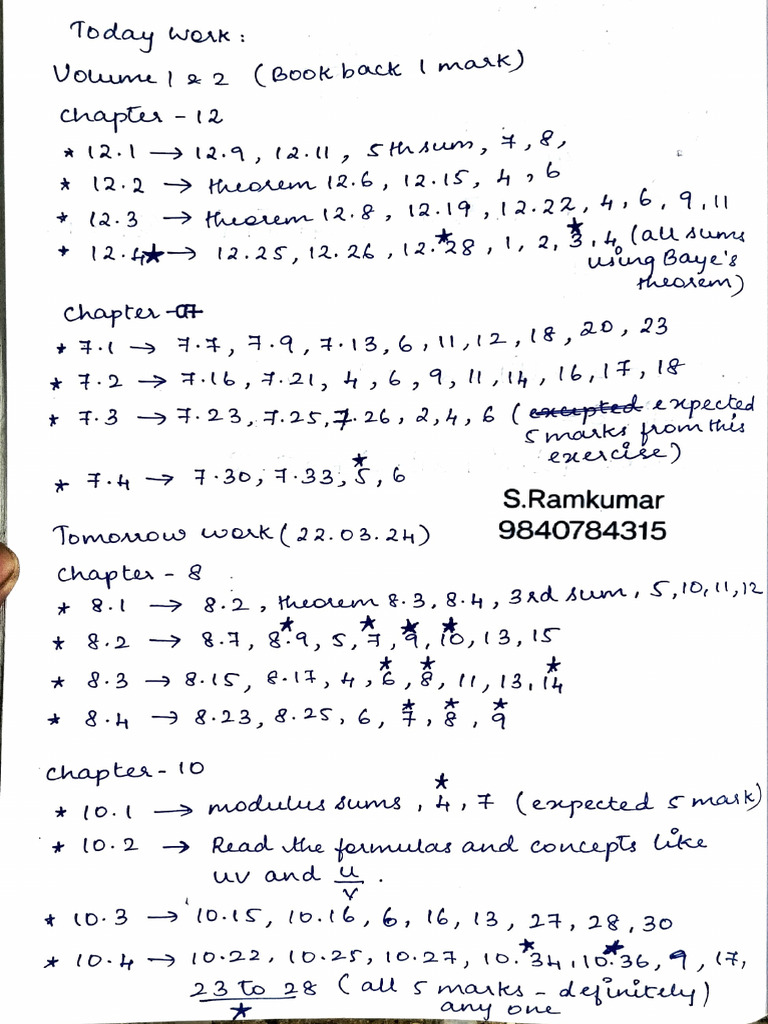 Today work:
Volume 1 & 2 (Book back 1 mark)
Chapter - 12
* 12.1 → 12.9, 12.11, 5th sum, 7, 8,
* 12.2 → theorem 12.6, 12.15, 4, 6
* 12.3 → theorem 12.8, 12.19, 12.22, 4, 6, 9, 11
* 12.4★ → 12.25, 12.26, 12.★28, 1, 2, ★3, 4, (all sums
using Baye's
theorem)
Chapter - 07
* 7.1 → 7.7, 7.9, 7.13, 6, 11, 12, 18, 20, 23
* 7.2 → 7.16, 7.21, 4, 6, 9, 11, 14, 16, 17, 18
* 7.3 → 7.23, 7.25, 7.26, 2, 4, 6 (expected
5 marks from this
exercise)
* 7.4 → 7.30, 7.33, ★5, 6
S.Ramkumar
9840784315
Tomorrow work (22.03.24)
Chapter - 8
* 8.1 → 8.2, theorem 8.3, 8.4, 3rd sum, 5, 10, 11, 12
* 8.2 → 8.7, ★8.9, 5, ★7, ★9, ★10, 13, 15
* 8.3 → 8.15, 8.17, 4, ★6, ★8, 11, 13, ★14
* 8.4 → 8.23, 8.25, 6, ★7, ★8, ★9
Chapter - 10
* 10.1 → modulus sums, ★4, 7 (expected 5 mark)
* 10.2 → Read the formulas and concepts like
uv and u/v.
* 10.3 → 10.15, 10.16, 6, 16, 13, 27, 28, 30
* 10.4 → 10.22, 10.25, 10.27, 10.★34, 10.★36, 9, 17,
23 to 28 (all 5 marks - definitely)
★ any one